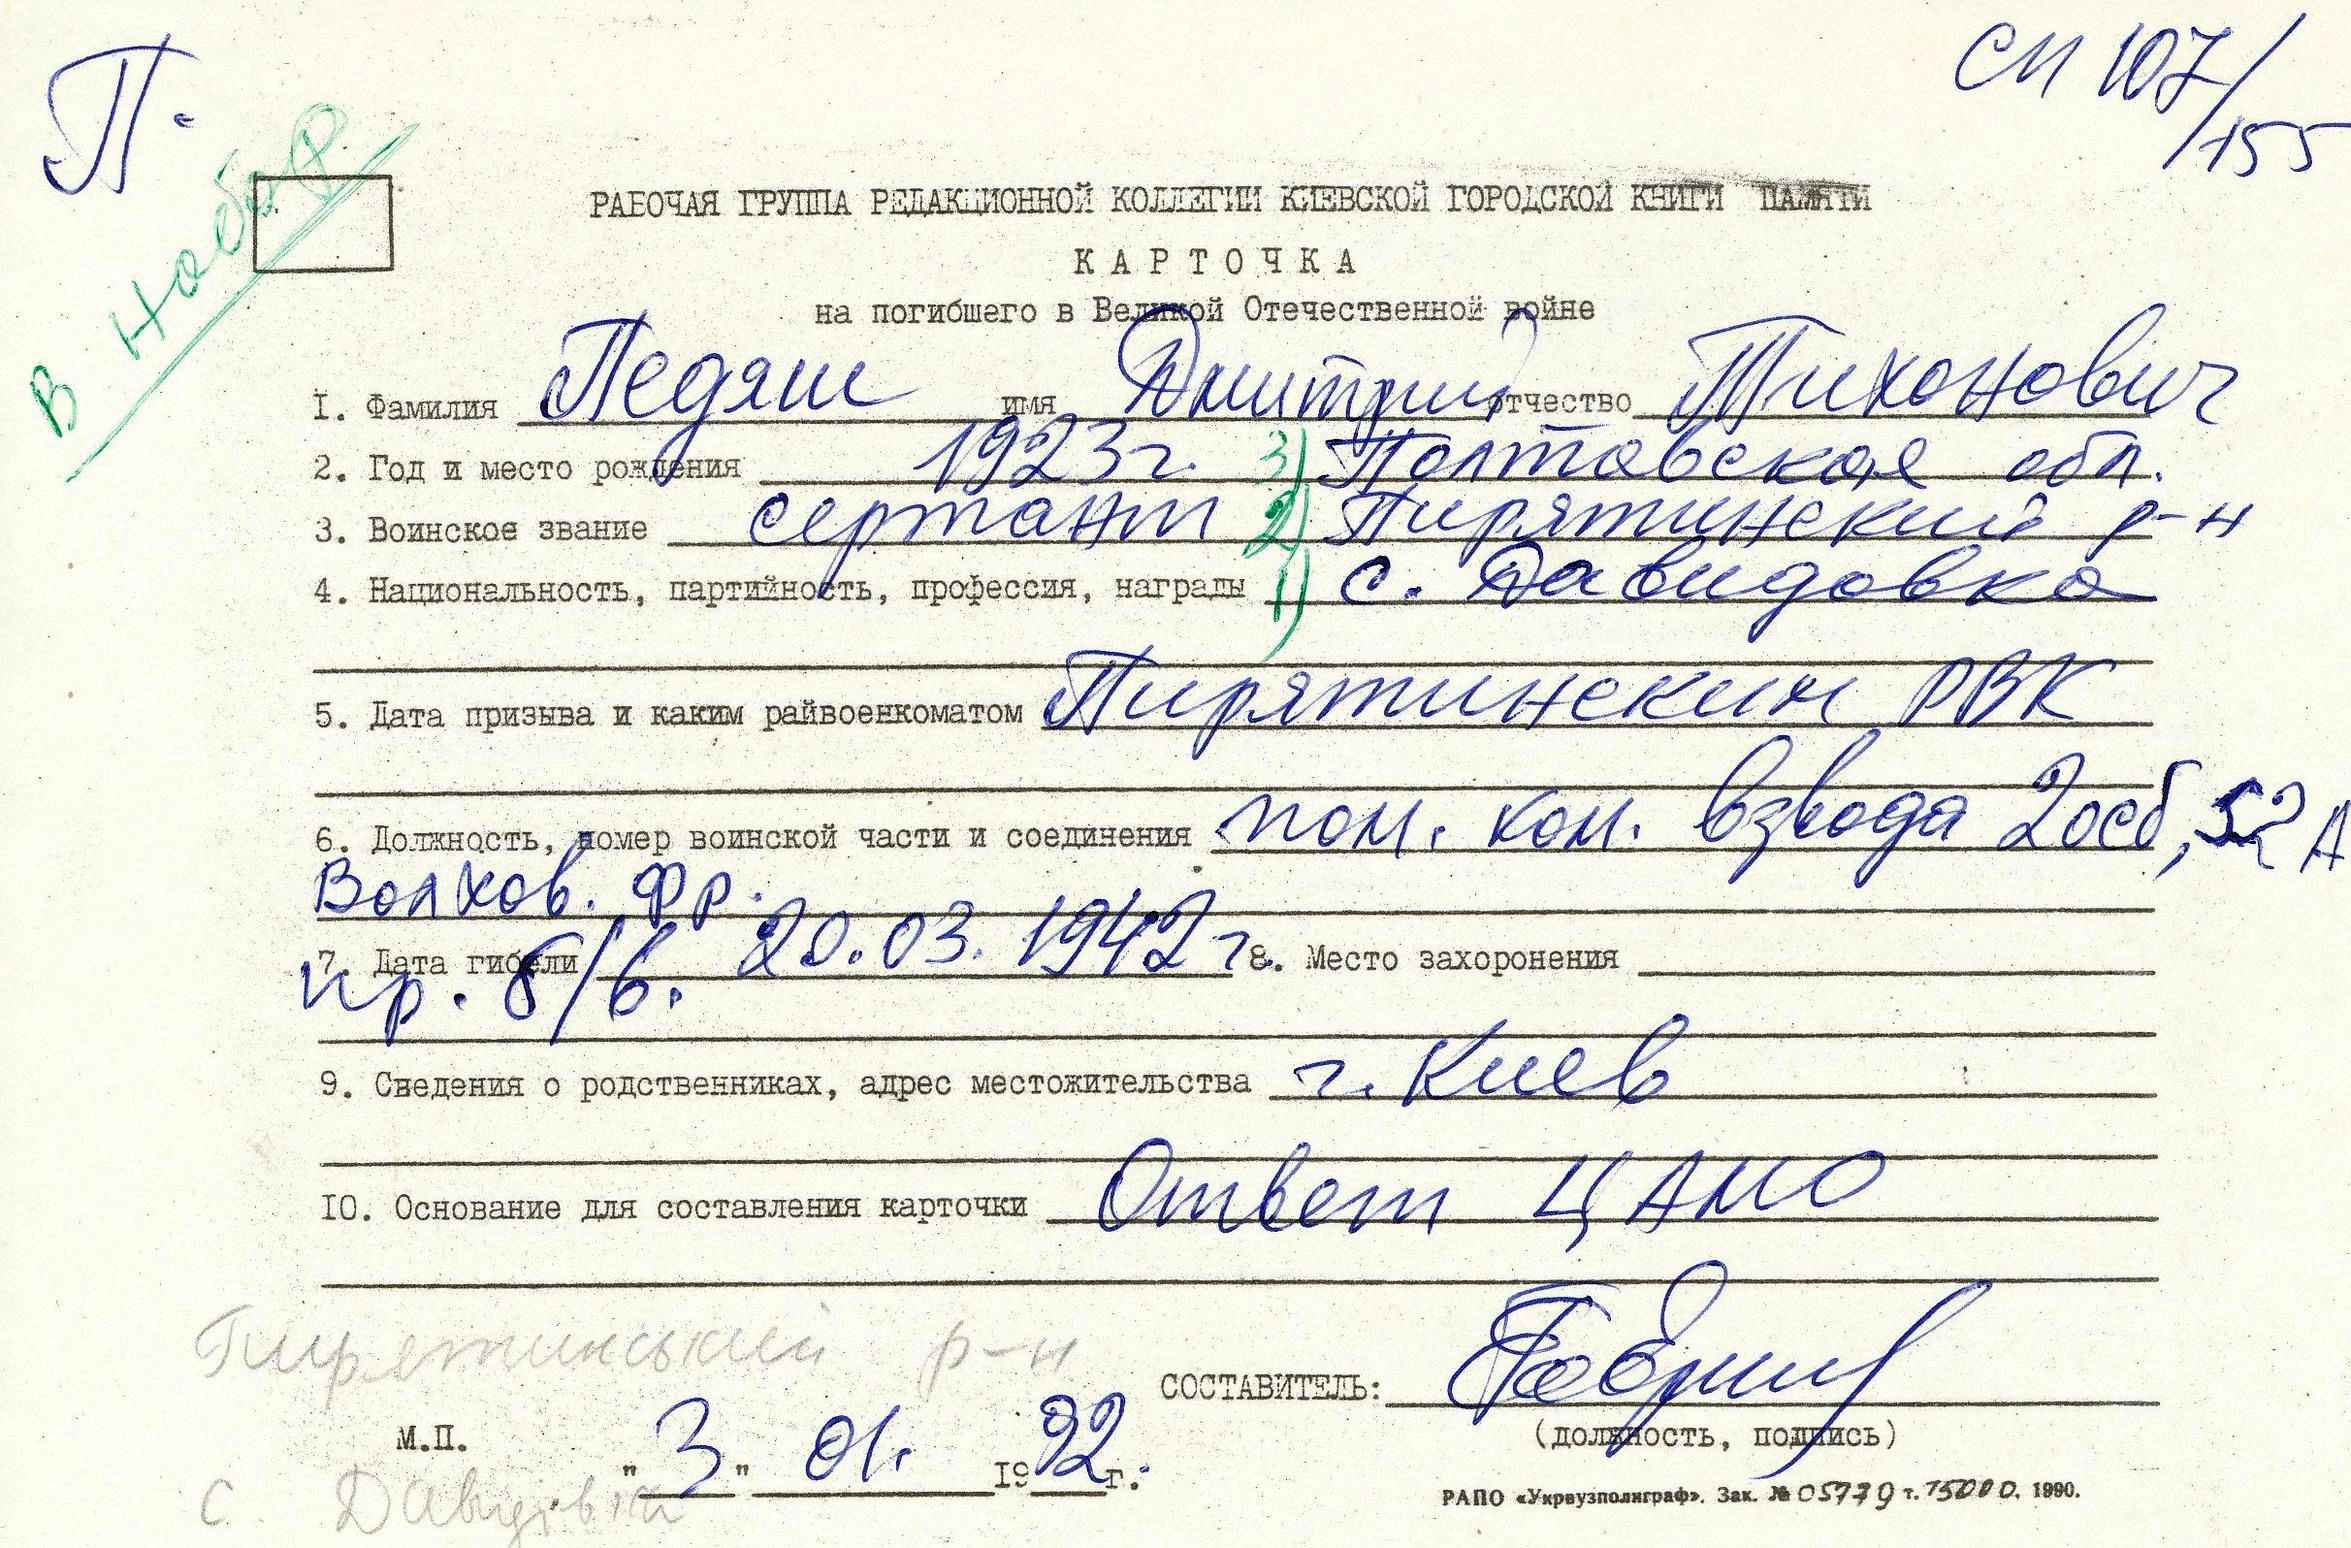 П.
СП 107/155
В набор
РАБОЧАЯ ГРУППА РЕДАКЦИОННОЙ КОЛЛЕГИИ КИЕВСКОЙ ГОРОДСКОЙ КНИГИ ПАМЯТИ
КАРТОЧКА
на погибшего в Великой Отечественной войне
I. Фамилия Педяш имя Дмитрий отчество Тихонович
2. Год и место рождения 1923г. 3) Полтавская обл.
3. Воинское звание сержант 2) Пирятинский р-н
4. Национальность, партийность, профессия, награды 1) с. Давидовка
5. Дата призыва и каким райвоенкоматом Пирятинским РВК
6. Должность, номер воинской части и соединения пом. ком. взвода 2осб, 52 А
Волхов. фр.
7. Дата гибели 20.03.1942г. 8. Место захоронения
пр. б/в.
9. Сведения о родственниках, адрес местожительства г. Киев
IO. Основание для составления карточки Ответ ЦАМО
Пирятинський р-н
СОСТАВИТЕЛЬ:
(должность, подпись)
М.П.
"3" 01. 1992г.
с Давидівка
РАПО «Укрвузполиграф». Зак. № 05779 т. 15000. 1990.